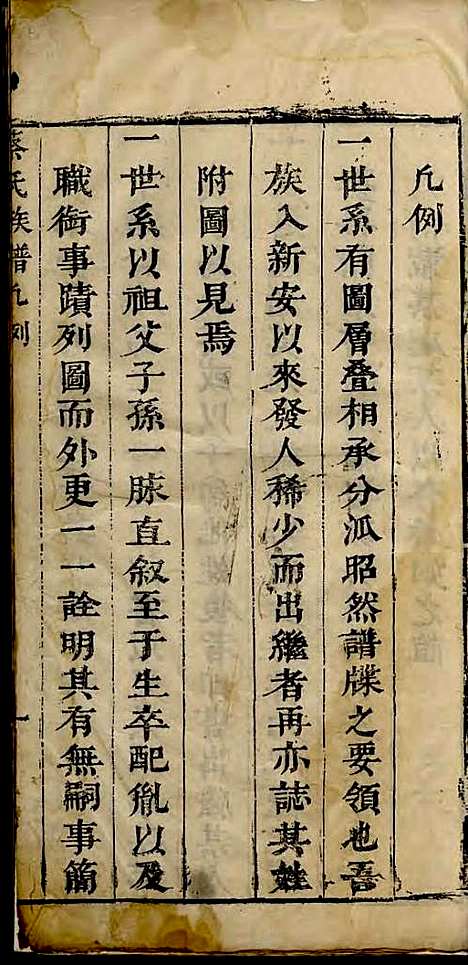 凡例
一世系有圖層叠相承分𣲖昭然譜牒之要領也吾
族入新安以來發人稀少而出繼者再亦誌其
附圖以見焉
一世系以祖父子孫一脉直叙至于生卒配胤以及
職銜事蹟列圖而外更一一詮明其有無嗣事簡
蔡氏族譜凡例
一